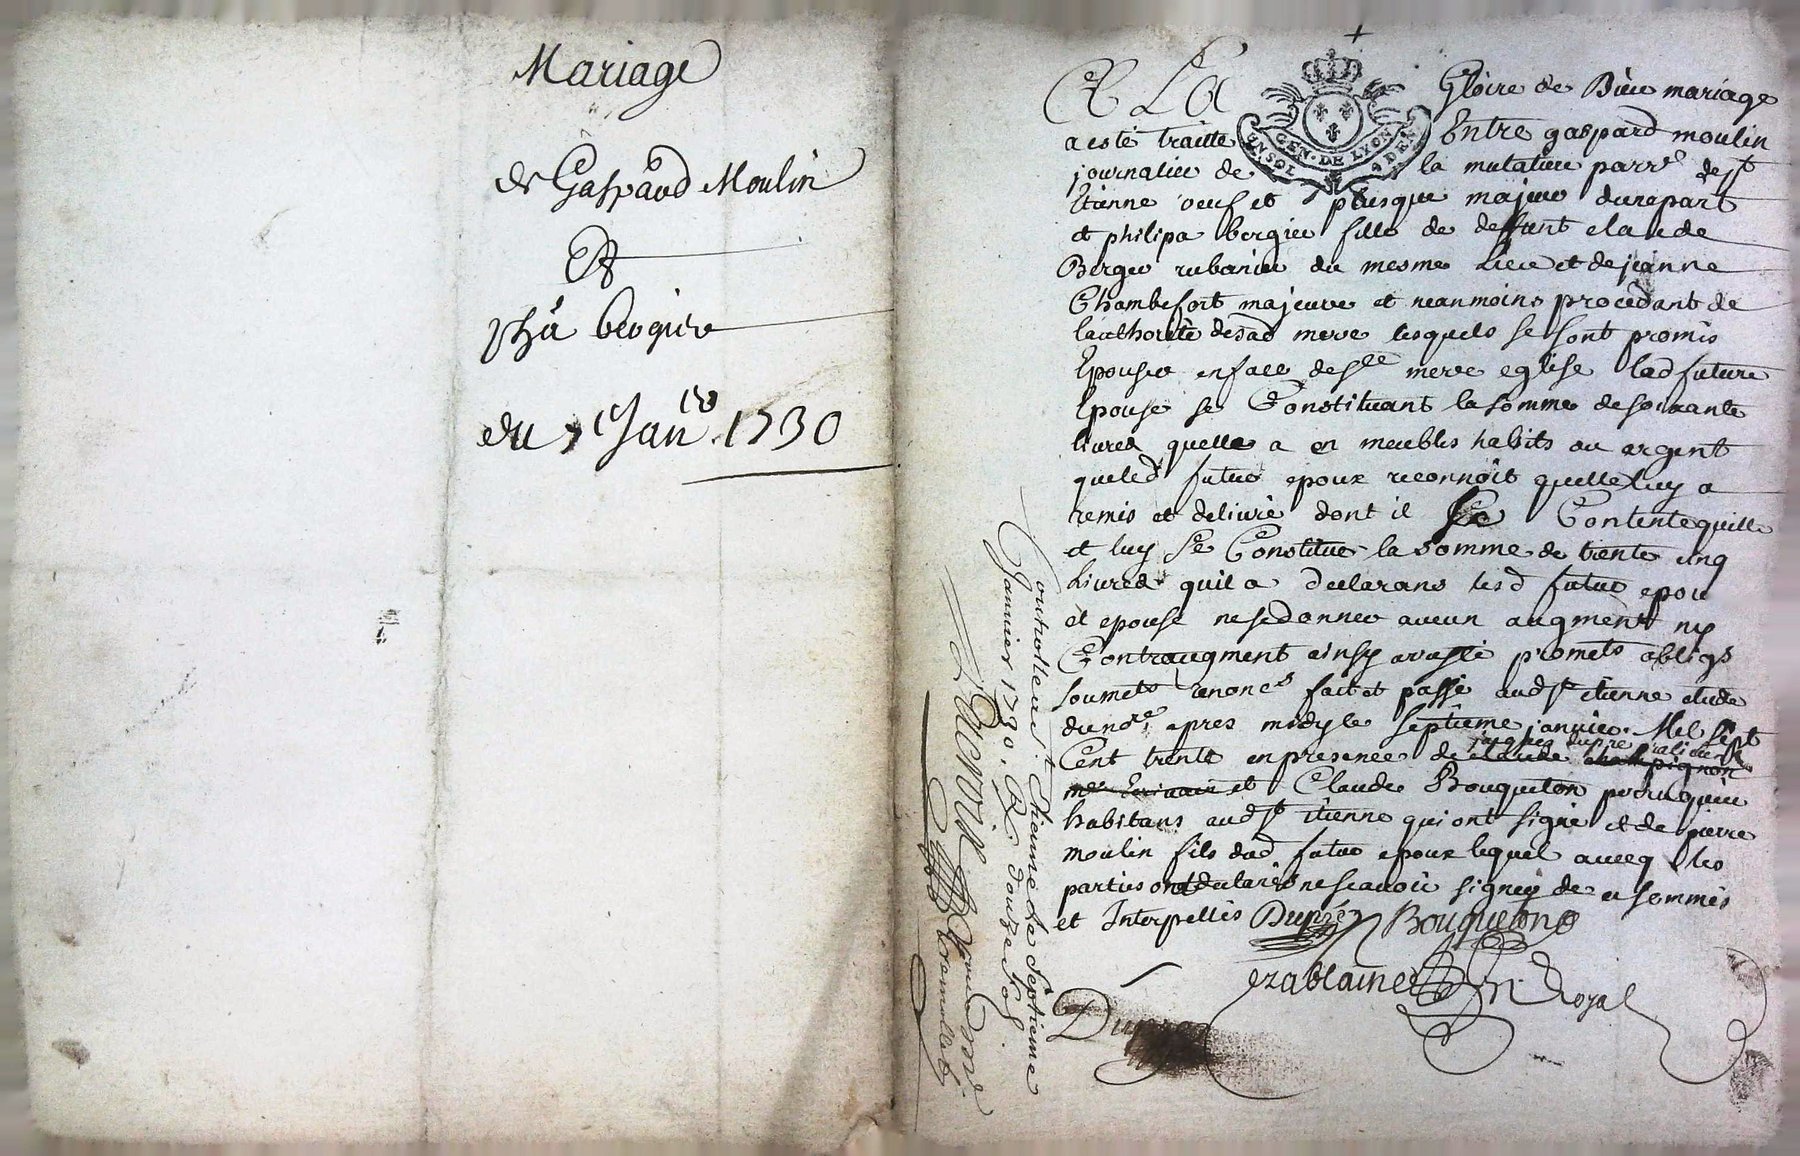 Mariage
de Gaspard Moulin
Et
pha bergier
du 7e Janer 1730
A La Gloire de Dieu mariage
GEN·DE LYON
UN SOL 4 DEN
a esté traitté Entre gaspard moulin
journalier de la mutatiere parre de st
Etienne veuf et plusque majeur dunepart
et philipa bergier fille de deffunt claude
Bergier rubanier du mesme Lieu et de jeanne
Chambefort majeure et neanmoins procédant de
lauthorité desad mere lesquels se sont promis
Epouser enface de ste mere eglise lad future
Epouse se Constituant la somme de soixante
livres quelle a en meubles habits ou argent
queled futur epoux reconnoit quelle luy a
remis et delivré dont il se Contente quitte
et luy se Constitue la somme de trente cinq
Livres quil a declarans lesd futur epou
et epouse ne se donner aucun augment ny
Contraugment ainsy aresté promets obligs
soumets renonces fait et passé aud st etienne etude
du nore apres midy le septieme janvier Mil sept
Cent trente en presence de claude champignon
jacques dupre
me Ecrivain et Claude Bouqueton perruquier
habitans aud st étienne qui ont signé et de pierre
moulin fils dud futur epoux lequel avecq les
parties ont declarés ne scavoir signer de ce sommés
et Interpellés Dupré Bouqueton
ezablaines Nre Royal
Dupré
Controlleur st Etienne le septieme
Janvier 1730. R. douze sols